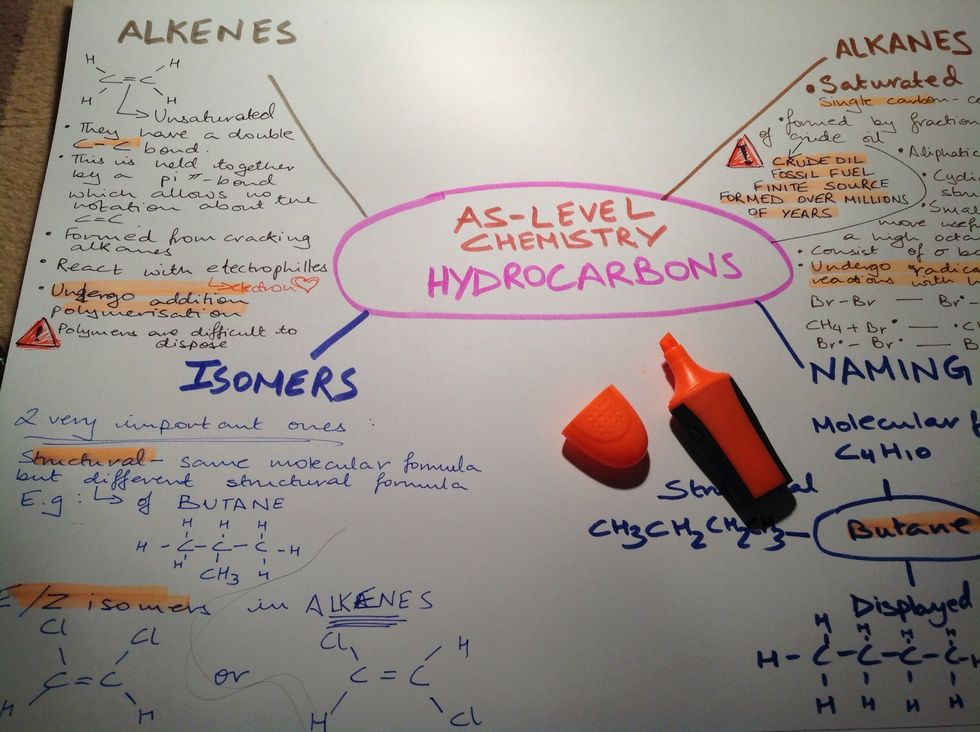 ALKENES
H H
C = C
H H
Unsaturated
• They have a double
C = C bond.
• This is held together
by a pi π-bond
which allows no
rotation about the
C=C
• Formed from cracking
alkanes
• React with electrophilles
electron
• Undergo addition
polymerisation
! Polymers are difficult to
dispose
AS-LEVEL
CHEMISTRY
HYDROCARBONS
ALKANES
• Saturated
Single carbon-
• formed by fraction
of crude oil
! CRUDE OIL
FOSSIL FUEL
FINITE SOURCE
FORMED OVER MILLIONS
OF YEARS
• Aliphatic
• Cyclic
• Small
more useful
a high octa
• Consist of σ bo
• Undergo radica
reactions with
Br-Br — Br•
CH4 + Br• — •C
Br• — Br• — B
ISOMERS
2 very important ones
Structural - same molecular formula
but different structural formula
E.g: of BUTANE
H H H
H - C - C - C - H
H CH3 H
E/Z isomers in ALKENES
Cl Cl
C = C
H H
or
Cl H
C = C
H Cl
NAMING
Molecular f
C4H10
Str al
CH3CH2CH2CH3 — Butane
Displayed
H H H H
H - C - C - C - C - H
H H H H